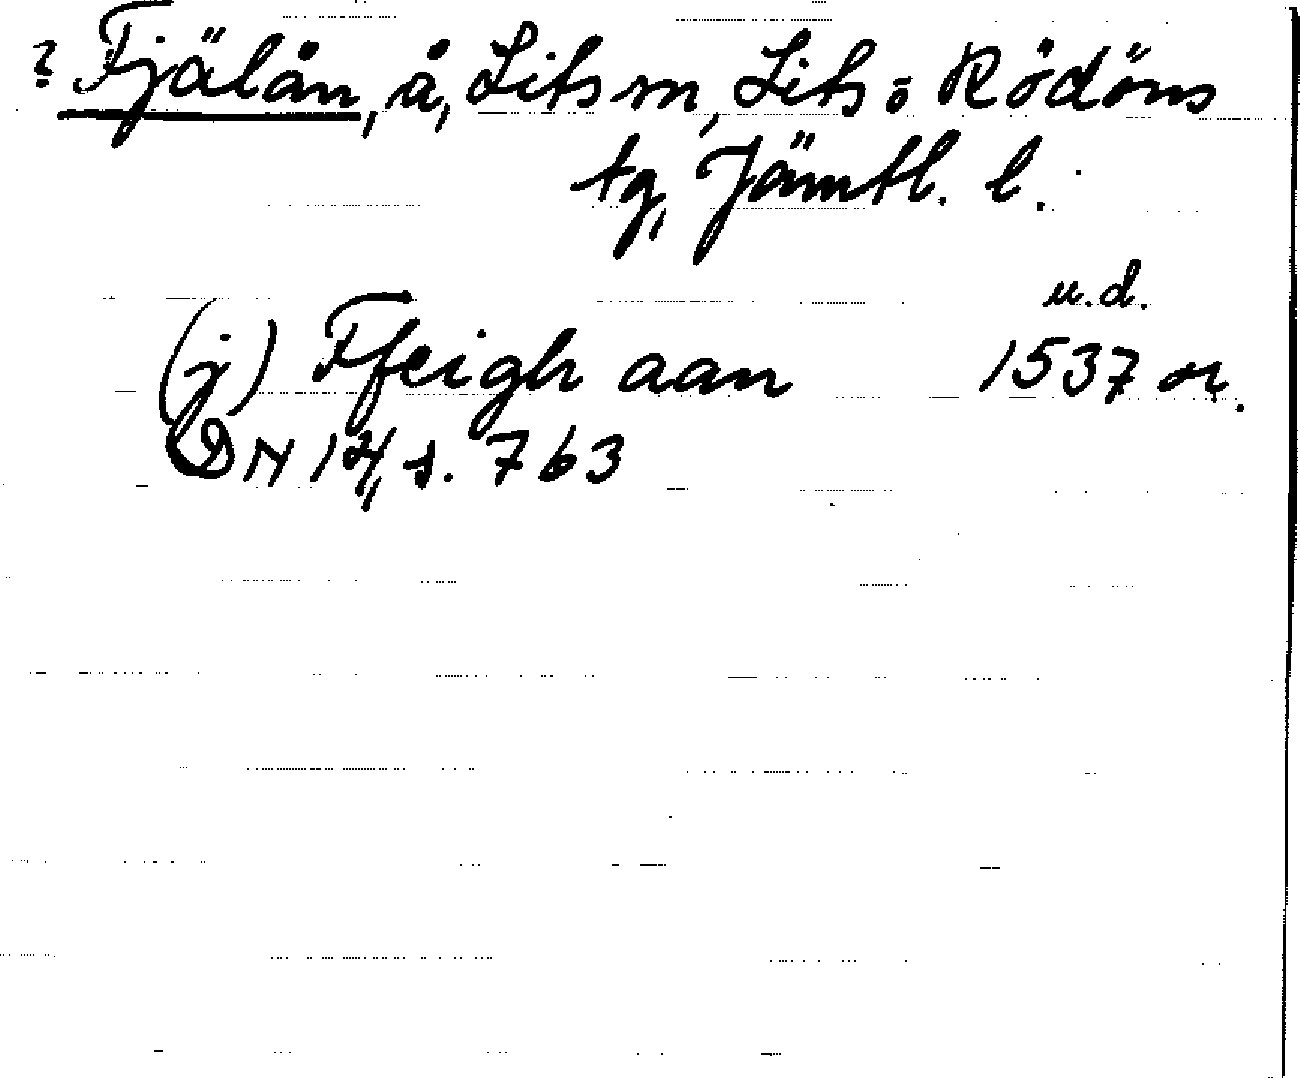 ? Fjälån, å, Lits sn, Lits o Rödöns
tg, Jämtl. l.
u.d.
(j) Ffeigh aan 1537 or.
DN 14, s. 763